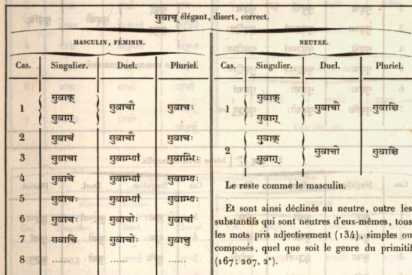 सुवाच् élégant, disert, correct.
MASCULIN, FÉMININ.
NEUTRE.
Cas. Singulier. Duel. Pluriel.
Cas. Singulier. Duel. Pluriel.
1 सुवाक् सुवाचौ सुवाचः
सुवाग्
2 सुवाचं सुवाचौ सुवाचः
3 सुवाचा सुवाग्भ्यां सुवाग्भिः
4 सुवाचे सुवाग्भ्यां सुवाग्भ्यः
5 सुवाचः सुवाग्भ्यां सुवाग्भ्यः
6 सुवाचः सुवाचोः सुवाचां
7 सुवाचि सुवाचोः सुवाक्षु
8 ...... ...... ......
1 सुवाक् सुवाची सुवाञ्चि
सुवाग्
2 सुवाक् सुवाची सुवाञ्चि
सुवाग्
Le reste comme le masculin.
Et sont ainsi déclinés au neutre, outre les
substantifs qui sont neutres d'eux-mêmes, tous
les mots pris adjectivement (134), simples ou
composés, quel que soit le genre du primitif
(167: 207, 2°).